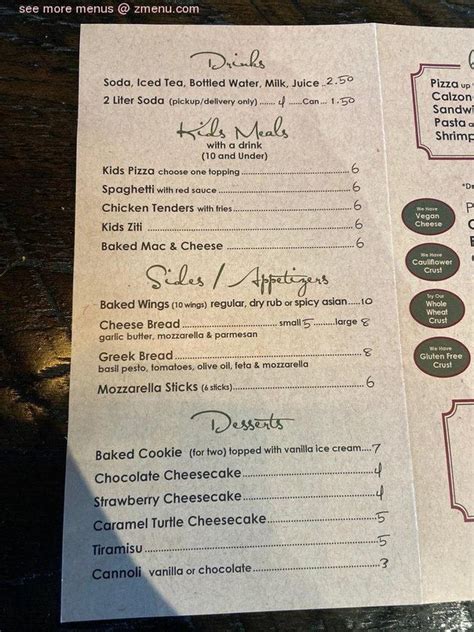 see more menus @ zmenu.com
Drinks
Soda, Iced Tea, Bottled Water, Milk, Juice ..2.50
2 Liter Soda (pickup/delivery only) ...... 4 ....Can... 1.50
Kids Meals
with a drink
(10 and Under)
Kids Pizza choose one topping ........ 6
Spaghetti with red sauce ........ 6
Chicken Tenders with fries ........ 6
Kids Ziti ........ 6
Baked Mac & Cheese ........ 6
Sides / Appetizers
Baked Wings (10 wings) regular, dry rub or spicy asian.....10
Cheese Bread ........ small 5 ........large 8
garlic butter, mozzarella & parmesan
Greek Bread ........ 8
basil pesto, tomatoes, olive oil, feta & mozzarella
Mozzarella Sticks (6 sticks) ........ 6
Desserts
Baked Cookie (for two) topped with vanilla ice cream....7
Chocolate Cheesecake ........ 4
Strawberry Cheesecake ........ 4
Caramel Turtle Cheesecake ........ 5
Tiramisu ........ 5
Cannoli vanilla or chocolate ........ 3
Pizza up
Calzon
Sandwi
Pasta
Shrimp
We Have
Vegan
Cheese
We Have
Cauliflower
Crust
Try Our
Whole
Wheat
Crust
We Have
Gluten Free
Crust